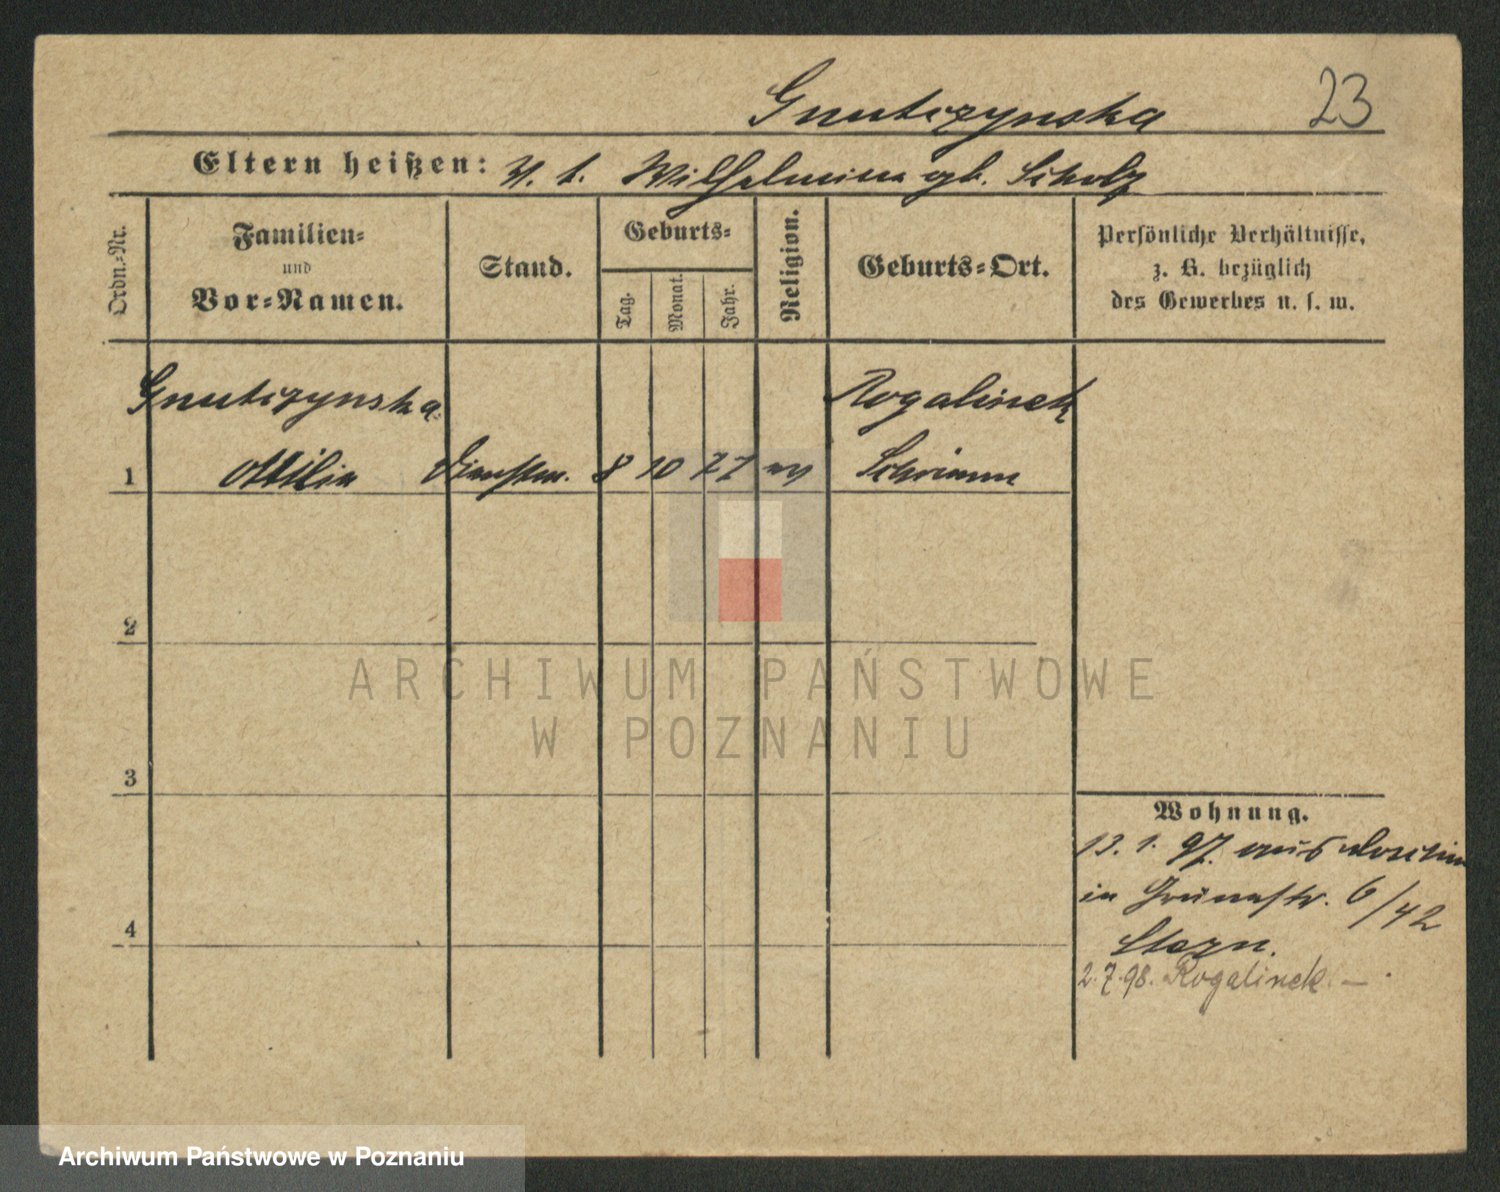 Gnutczynska 23
Eltern heißen: V. t. Wilhelmine gb. Scholz
Ordn.-Nr.
Familien-
und
Vor-Namen.
Stand.
Geburts-
Tag.
Monat.
Jahr.
Religion.
Geburts-Ort.
Persönliche Verhältnisse,
z. B. bezüglich
des Gewerbes u. s. w.
Gnutczynska
Rogalinek
1 Ottilie Dienstm. 8 10 77 Schrimm
2
ARCHIWUM PAŃSTWOWE
W POZNANIU
3
Wohnung.
13. 1. 97. aus
in Grünestr. 6/42
4
2.7.98. Rogalinek —
Archiwum Państwowe w Poznaniu